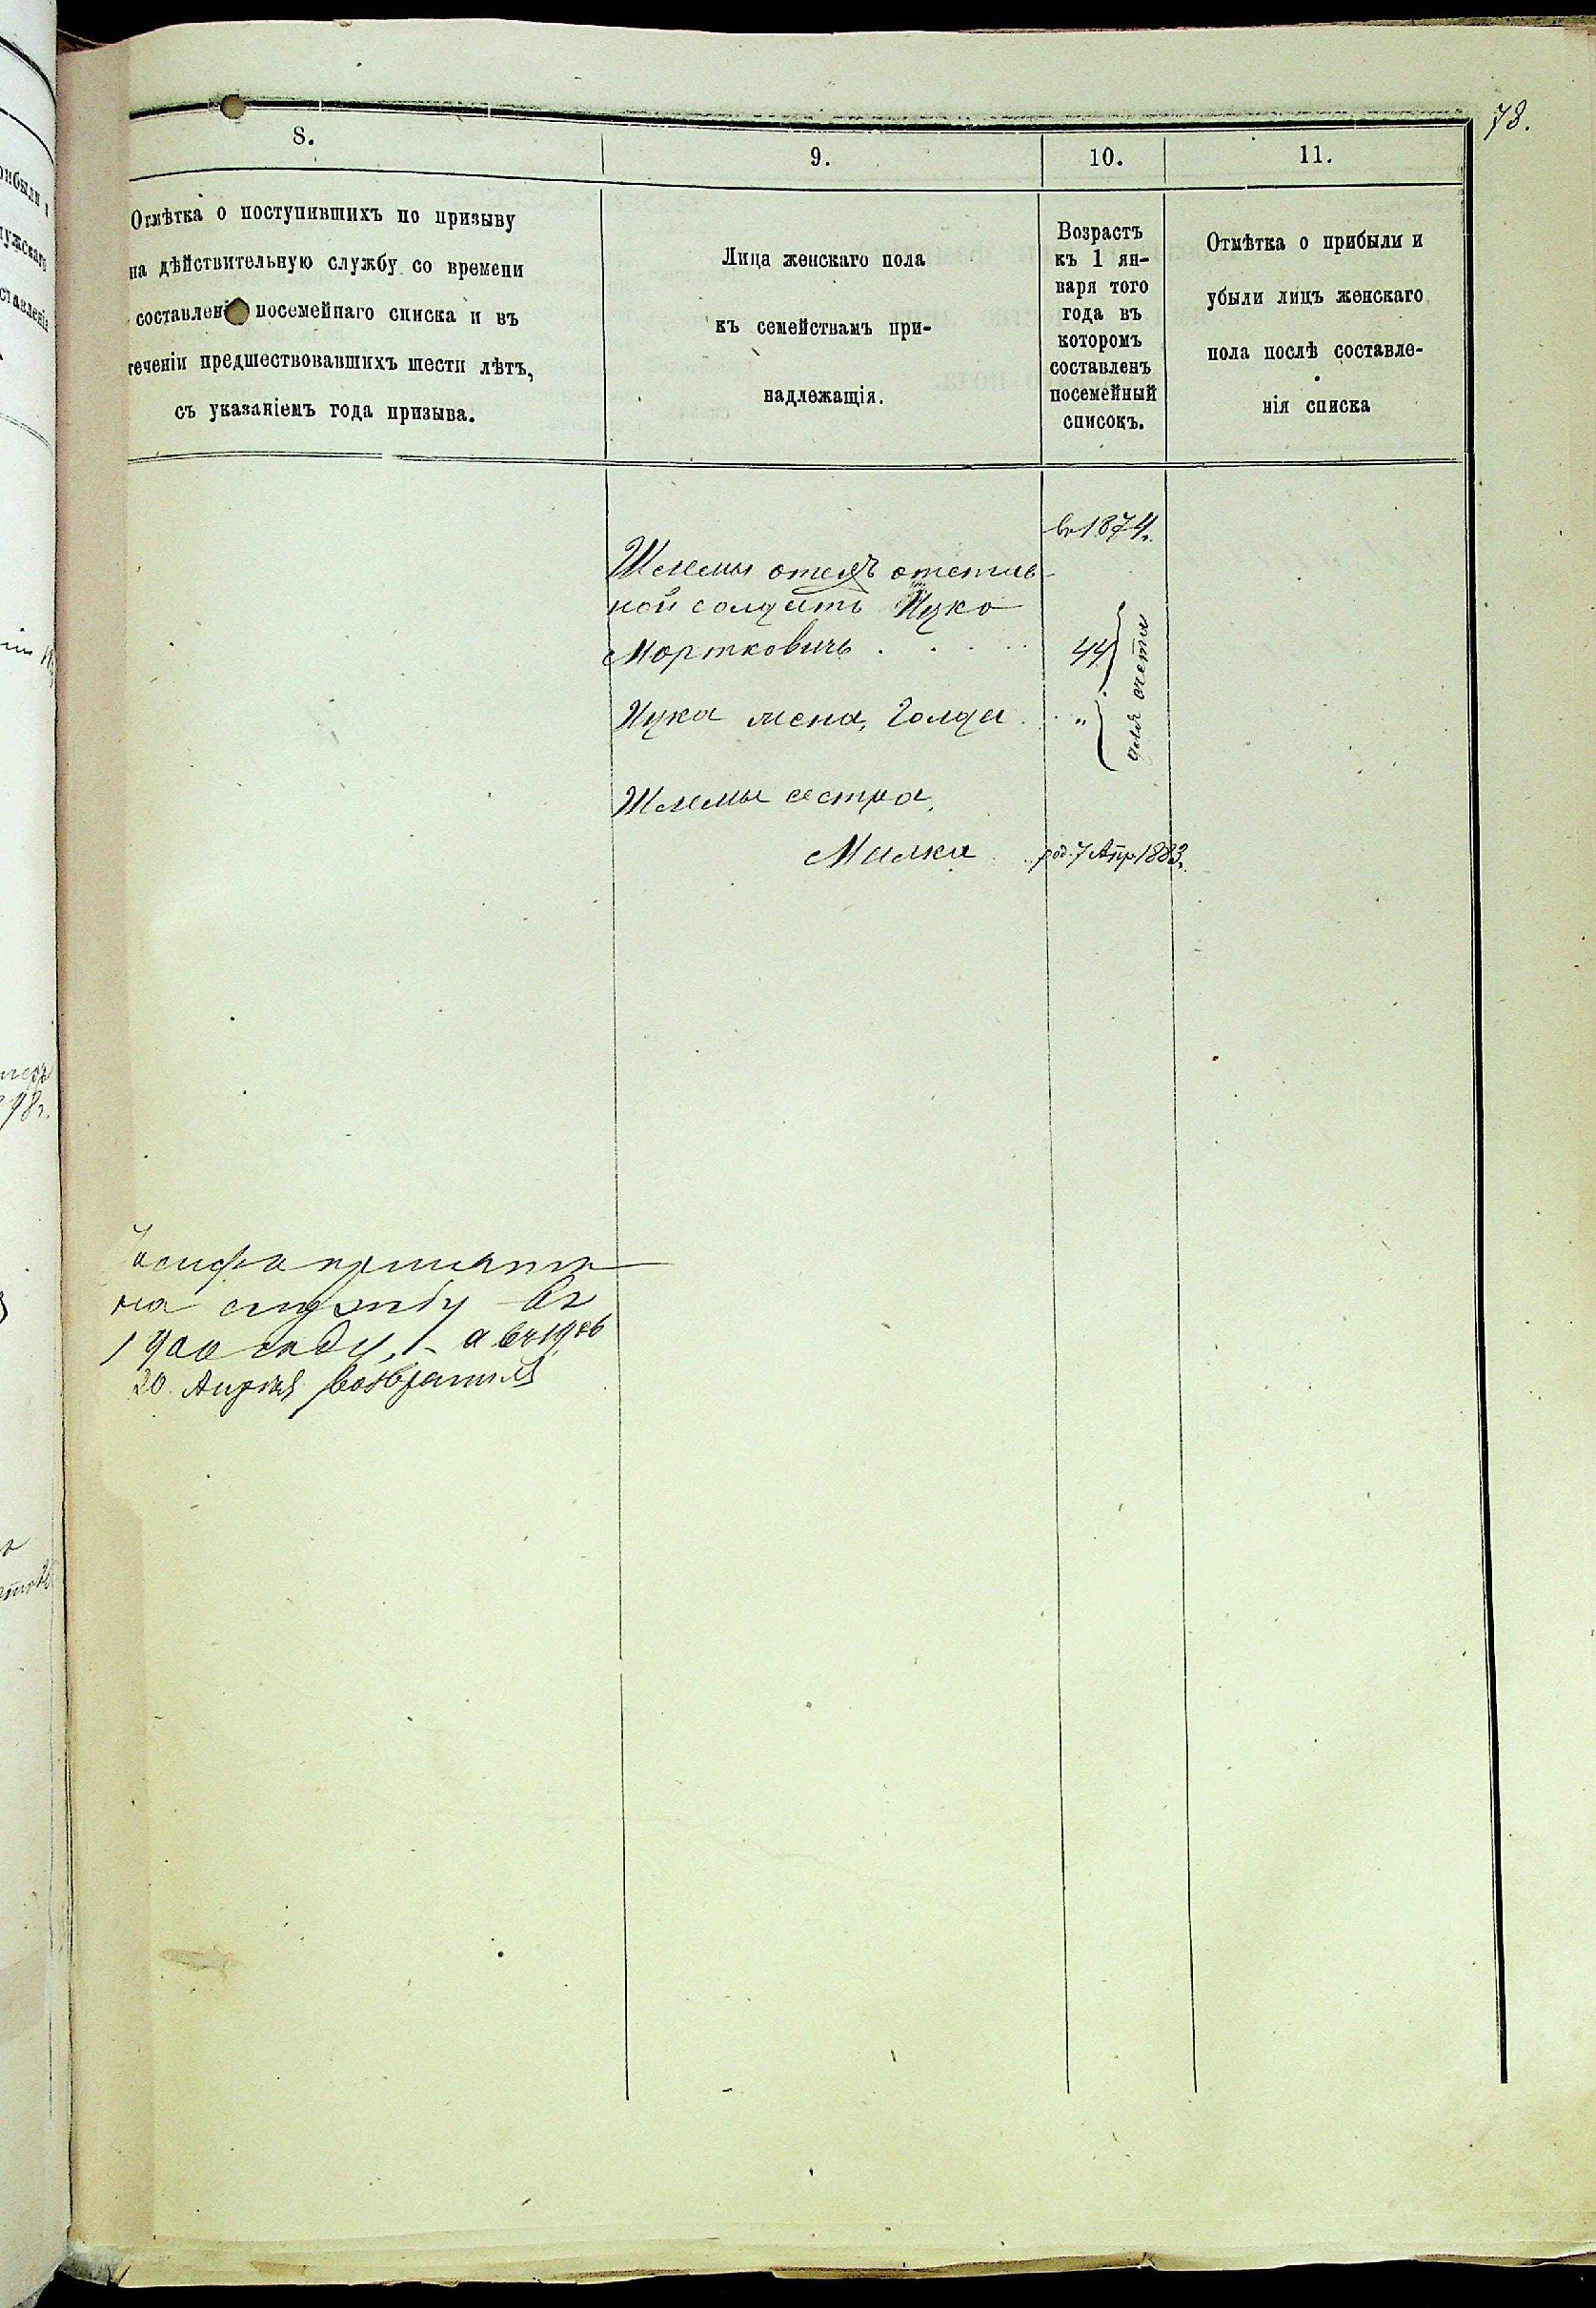 78.
8.
9.
10.
11.
Отмѣтка о поступившихъ по призыву
на дѣйствительную службу со времени
составленія посемейнаго списка и въ
теченіи предшествовавшихъ шести лѣтъ,
съ указаніемъ года призыва.
Лица женскаго пола
къ семействамъ при-
надлежащія.
Возрастъ
къ 1 ян-
варя того
года въ
которомъ
составленъ
посемейный
списокъ.
Отмѣтка о прибыли и
убыли лицъ женскаго
пола послѣ составле-
нія списка
въ 1874.
Шлемы отецъ отстав-
ной солдатъ Ицко
Мортковичъ . . . . 44
Ицка жена, Голда . . "
для счета
Шлемы сестра,
Милка . . род. 7 Апр 1883.
принятъ
на службу въ
1900 году, - а въ 1906
20 Апрѣля возвратился